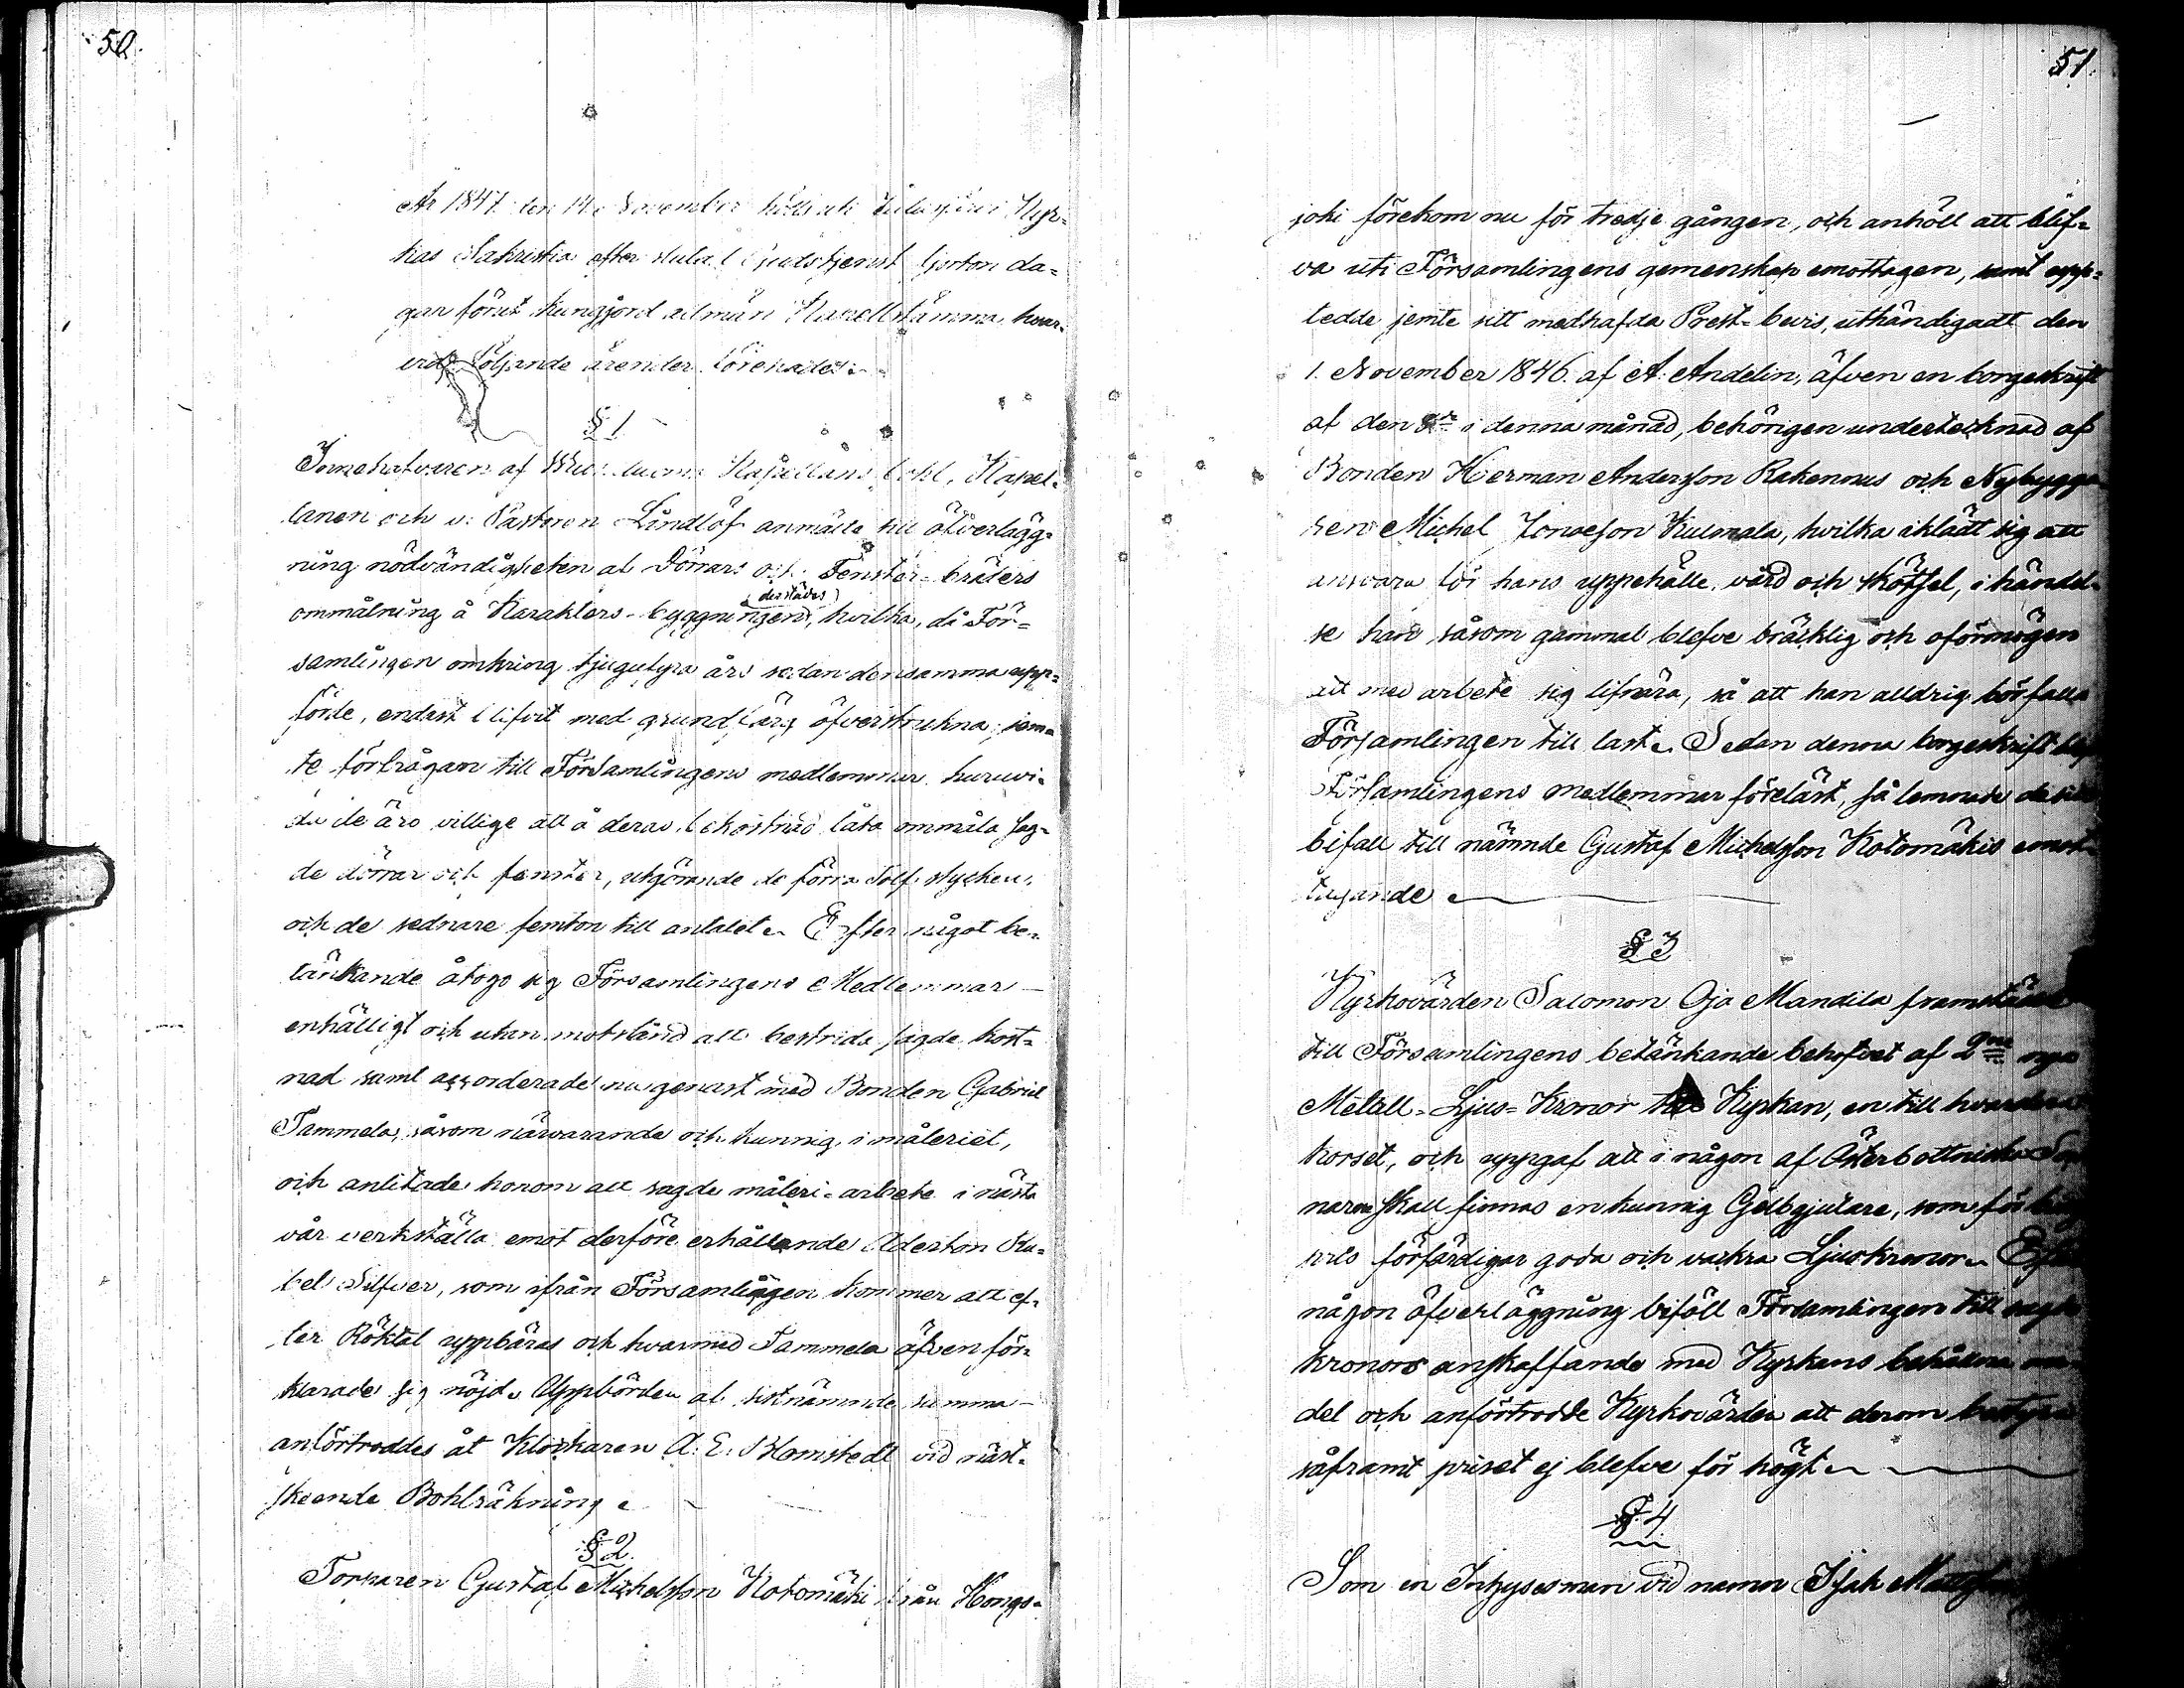 50.
År 1847 den 14 November hölls uti Kyr-
kas Sakristia efter slutad Gudstjenst fjorton da-
gar förut kungjord allmän Kapellstämma, hvar-
vid följande ärender förehades.
§ 1
Innehafvaren af Kapellans bohl, Kapel-
lanen och v. Pastoren Lindlöf anmälte till öfverlägg-
ning nödvändigheten af Dörrars och Fenster-bräders
ommålning å Karakters-byggningen derstädes, hvilka, då För-
samlingen omkring tjugufyra års sedan densamma upp-
förde, endast blifvit med grundfärg öfverstrukna; jem-
te förfrågan till Församlingens medlemmar huruvi-
da de äro villige att å deras bekostnad låta ommåla sag-
de dörrar och fenster, utgörande de förra Tolf stycken,
och de sednare femton till antalet. Efter något be-
tänkande åtogo sig Församlingens Medlemmar
enhälligt och utan motstånd att bestrida sagde kost-
nad samt accorderade nu genast med Bonden Gabriel
Tammela, såsom närvarande och kunnig i måleriet,
och anlitade honom att sagde måleri-arbete i nästa
vår verkställa emot derföre erhållande Aderton Ru-
bel Silfver, som ifrån Församlingen kommer att ef-
ter Röktal uppbäras och hvarmed Tammela äfven för-
klarade sig nöjd. Uppbörden af sistnämnde summa
anförtroddes åt Klockaren A. E. Blomstedt vid näst-
skeende Bohlräkning.
§ 2.
Torparen Gustaf Michelsson Kotomäki från Kongs-
51.
joki förekom nu för tredje gången, och anhöll att blif-
va uti Församlingens gemenskap emottagen, samt upp-
tedde jemte sitt medhafda Prest-bevis, uthändigadt den
1. November 1846. af A. Andelin, äfven en borgeskrift
af den i denna månad, behörigen undertecknad af
Bonden Herman Andersson Rakennus och Nybygga-
ren Michel Jonasson Kusmala, hvilka iklädt sig att
ansvara för hans uppehälle, vård och skötsel, i händel-
se han såsom gammal blefve bräcklig och oförmögen
att med arbete sig lifnära, så att han alldrig bör falla
Församlingen till last. Sedan denna borgeskrift blef
Församlingens medlemmar föreläst, så lemnade de sitt
bifall till nämnde Gustaf Michelsson Kotomäkis emot-
tagande.
§ 3
Kyrkovärden Salomon Oja Mandila framställde
till Församlingens betänkande behofvet af 2ne nya
Metall-Ljus-Kronor till Kyrkan, en till hvardera
korset, och uppgaf att i någon af Österbottniska
narna skall finnas en kunnig Gelbgjutare, som för
pris förfärdigar goda och vackra Ljuskronor. Efter
någon öfverläggning biföll Församlingen till sagde
kronors anskaffande med Kyrkans behållna me-
del och anförtrodde Kyrkovärden att derom bestyra
såframt priset ej blefve för högt.
§ 4
Som en Inhysesman vid namn Isak